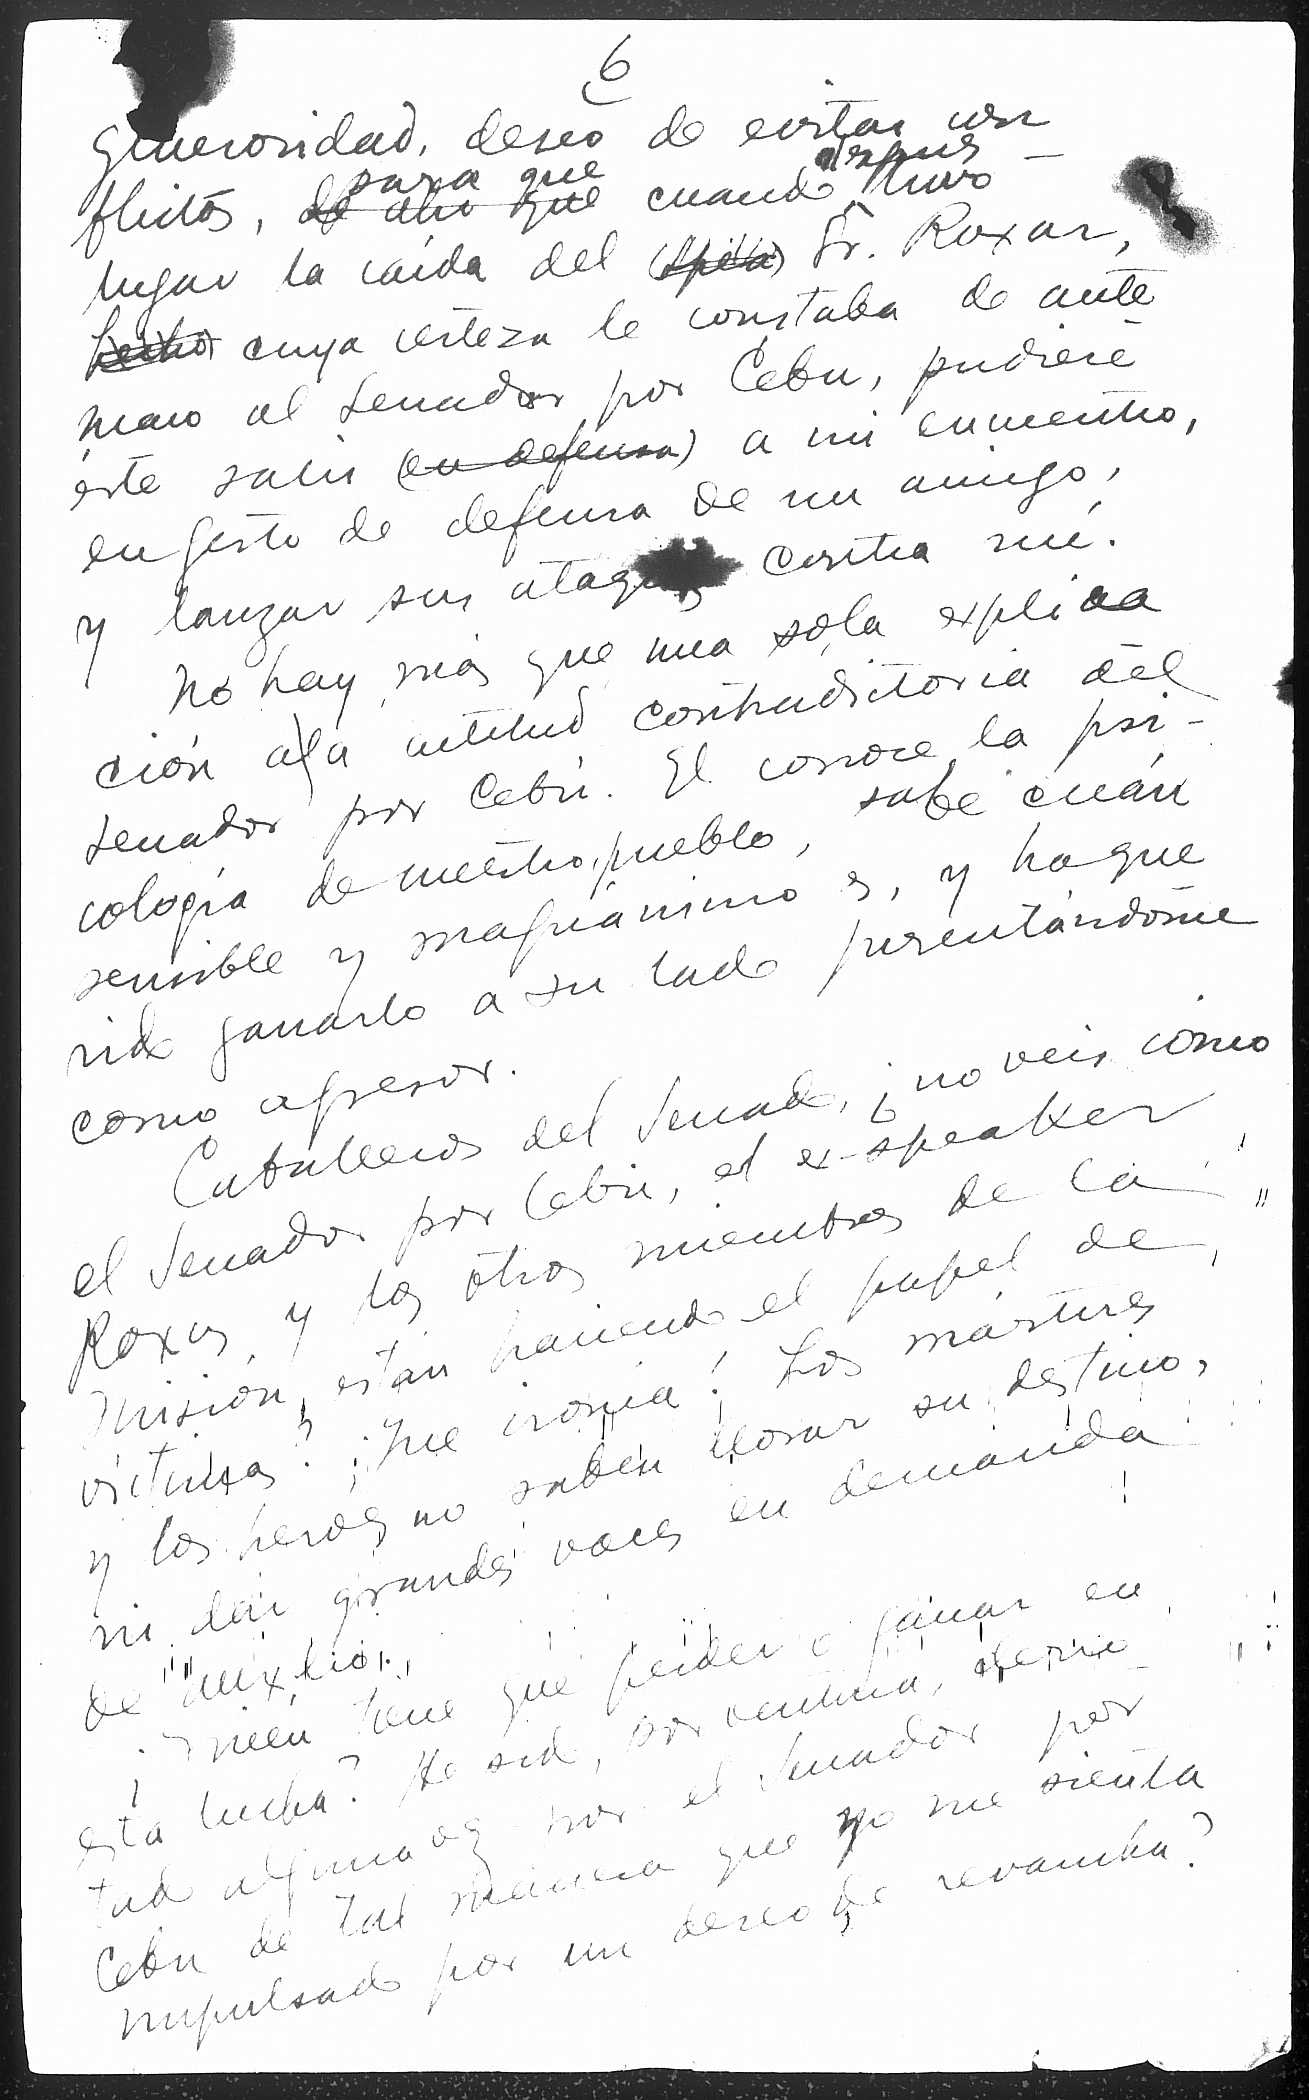 6
generosidad, deseo de evitar con
flictos, de ahi que para que cuando después tuvo
lugar la caída del (Spea) Sr. Roxas,
hecho cuya certeza le constaba de ante
mano al Senador por Cebú, pudiese
éste salir (en defensa) a mi encuentro,
en gesto de defensa de un amigo,
y lanzar sus ataques contra mí.
No hay más que una sola explica
ción a la actitud contradictoria del
Senador por Cebú. El conoce la psi-
cología de nuestro pueblo, sabe cuán
sensible y magnánimo es, y ha que
rido ganarlo a su lado presentándome
como agresor.
Caballeros del Senado, ¿no veis cómo
el Senador por Cebú, el ex-speaker
Roxas, y los otros miembros de la
Misión, están haciendo el papel de
víctimas? ¡Qué ironía! Los mártires
y los heroes no saben llorar su destino,
ni dar grandes voces en demanda
de auxilio.
¿Quién tiene que perder o ganar en
esta lucha? He sido, por ventura, derro
tado alguna vez por el Senador por
Cebu de tal manera que yo me sienta
impulsado por un deseo de revancha?